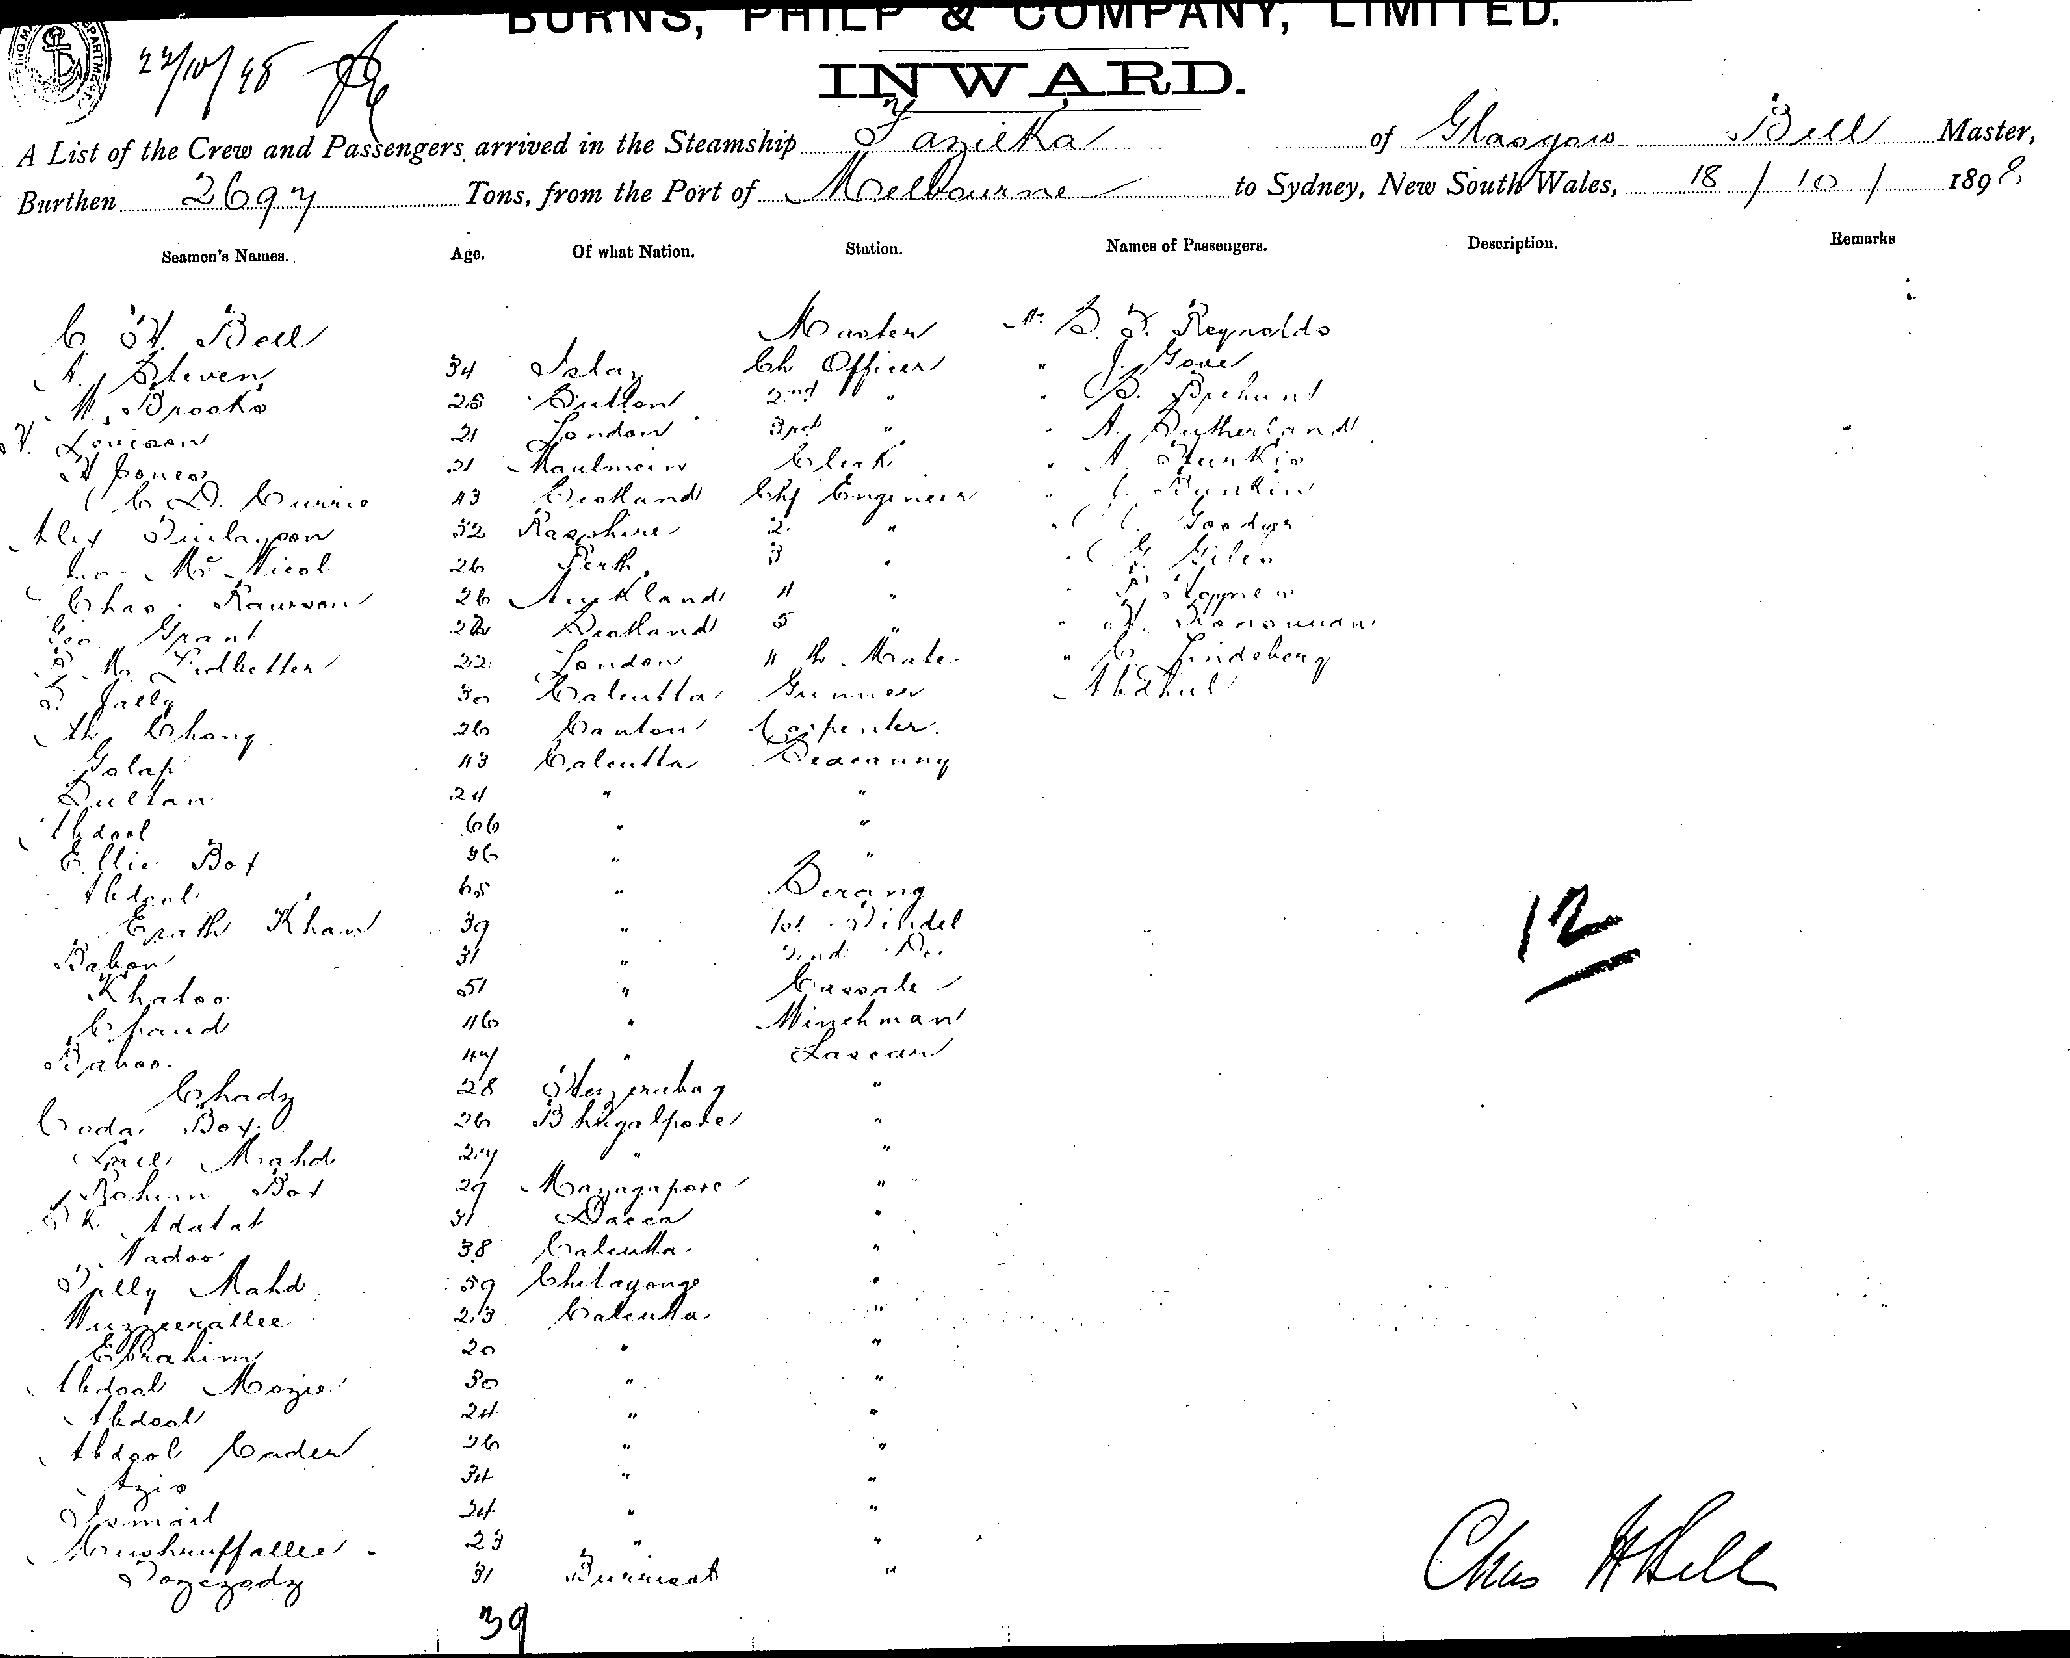 BURNS, PHILP & COMPANY, LIMITED.
22/10/98
INWARD.
A List of the Crew and Passengers arrived in the Steamship Fazilka of Glasgow Bell Master,
Burthen 2697 Tons, from the Port of Melbourne to Sydney, New South Wales, 18 / 10 / 1898
Seamen's Names. Age. Of what Nation. Station. Names of Passengers. Description. Remarks
C H. Bell Master Mr. Reynolds
A. Steven 34 Islay Ch Officer " J. Gove
Brooks 25 Sutton 2nd " "
21 London 3rd " " A. Sutherland
H Jones 21 Maulmein Clerk "
C D. Currie 43 Scotland Chf Engineer " J. Rankin
Alex Finlayson 32 Rosshire 2 " "
Jno Mc Nicol 26 Perth 3 " " G. Giles
Chas. Rawson 26 Auckland 4 " "
Geo Grant 26 Scotland 5 " "
Ledbetter 22 London 4 th Mate " C. Lindeberg
30 Calcutta Gunner Abdul
Ah Chong 26 Canton Carpenter.
Golap 43 Calcutta Seacunny
Sultan 24 " "
Abdool 66 " "
Ellie Box 36 " "
Abdool 65 " Serang
Khan 39 " 1st Tindel
31 " 2nd Do.
Khatoo 51 " Cassab
Chand 46 " Winchman
Baboo. 47 " Lascar
28 "
Coda Box 26 Bhugalpore "
Mahd 27 " "
Rahim Box 29 "
Sk Adalat 31 Dacca "
Nadoo 38 Calcutta "
Mahd 59 Chitagonge "
Wuzzeerallee 23 Calcutta "
Ebrahim 20 " "
Abdool 30 " "
Abdool 24 " "
Abdool Cader 26 " "
Azis 34 " "
Ismail 24 " "
Mushruffallee 23 " "
31 "
39
12
Chas H Bell